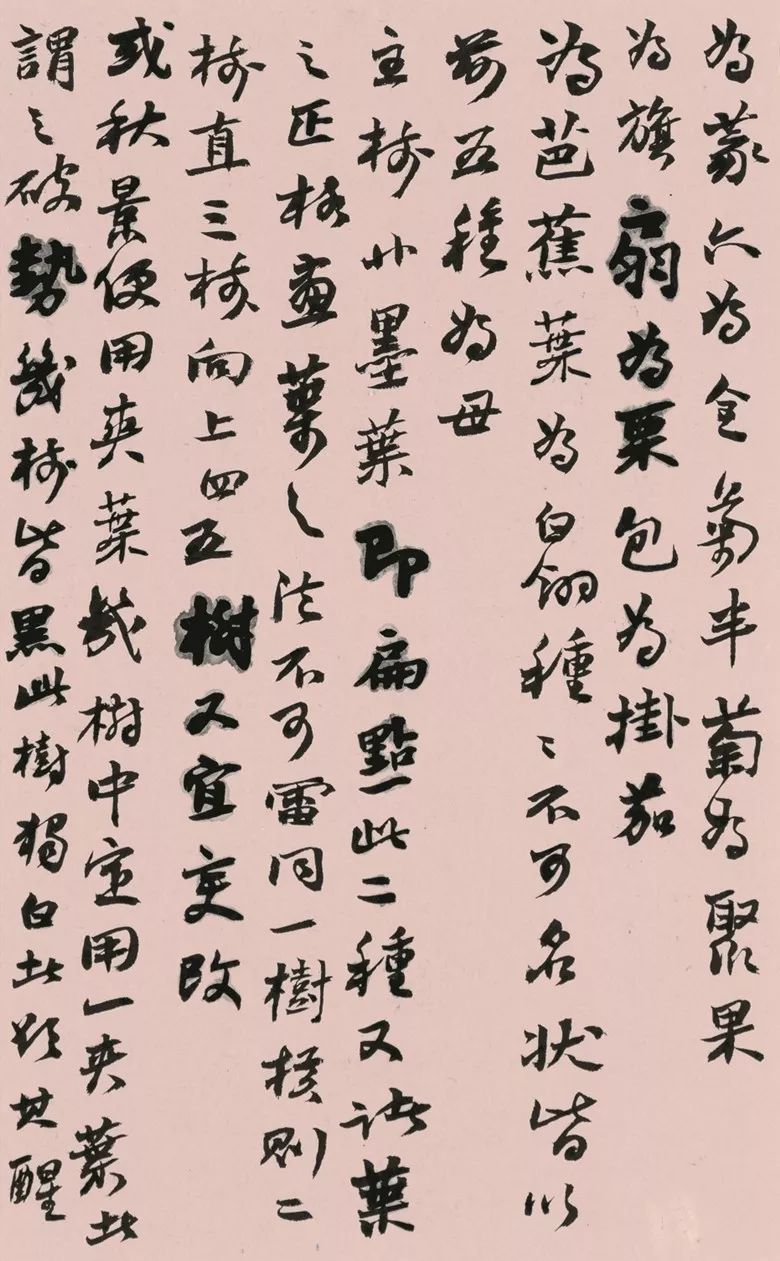 為蒙六為仝菊半菊為聚果
為旗扇為栗包為掛茄
為芭蕉葉為白翎種〻不可名狀皆以
前五種為母
主樹 墨葉即扁點此二種又諸葉
之匠格畫葉之法不可雷同一樹橫則二
樹直三樹向上四五樹又宜变改
或秋景便用夾葉幾樹中定用一夾葉此
謂之破勢幾樹皆黑此樹獨白 其醒